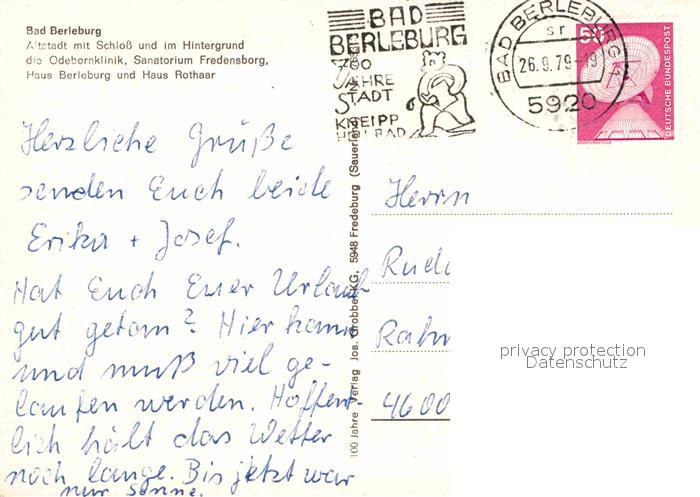 Bad Berleburg
Altstadt mit Schloß und im Hintergrund
die Odebornklinik, Sanatorium Fredensborg,
Haus Berleburg und Haus Rothaar
BAD
BERLEBURG
700
JAHRE
STADT
KNEIPP
HEILBAD
BAD BERLEBURG 1
sr
26.9.79-19
5920
50
DEUTSCHE BUNDESPOST
ERDEFUNKSTELLE
Herzliche Grüße
senden Euch beide
Erika + Josef.
Hat Euch Euer Urlaub
gut getan? Hier kann
und muß viel ge-
laufen werden. Hoffent-
lich hält das Wetter
noch lange. Bis jetzt war
nur Sonne.
100 Jahre Verlag Jos. Grobbel KG, 5948 Fredeburg (Sauerland)
Herrn
4600
privacy protection
Datenschutz